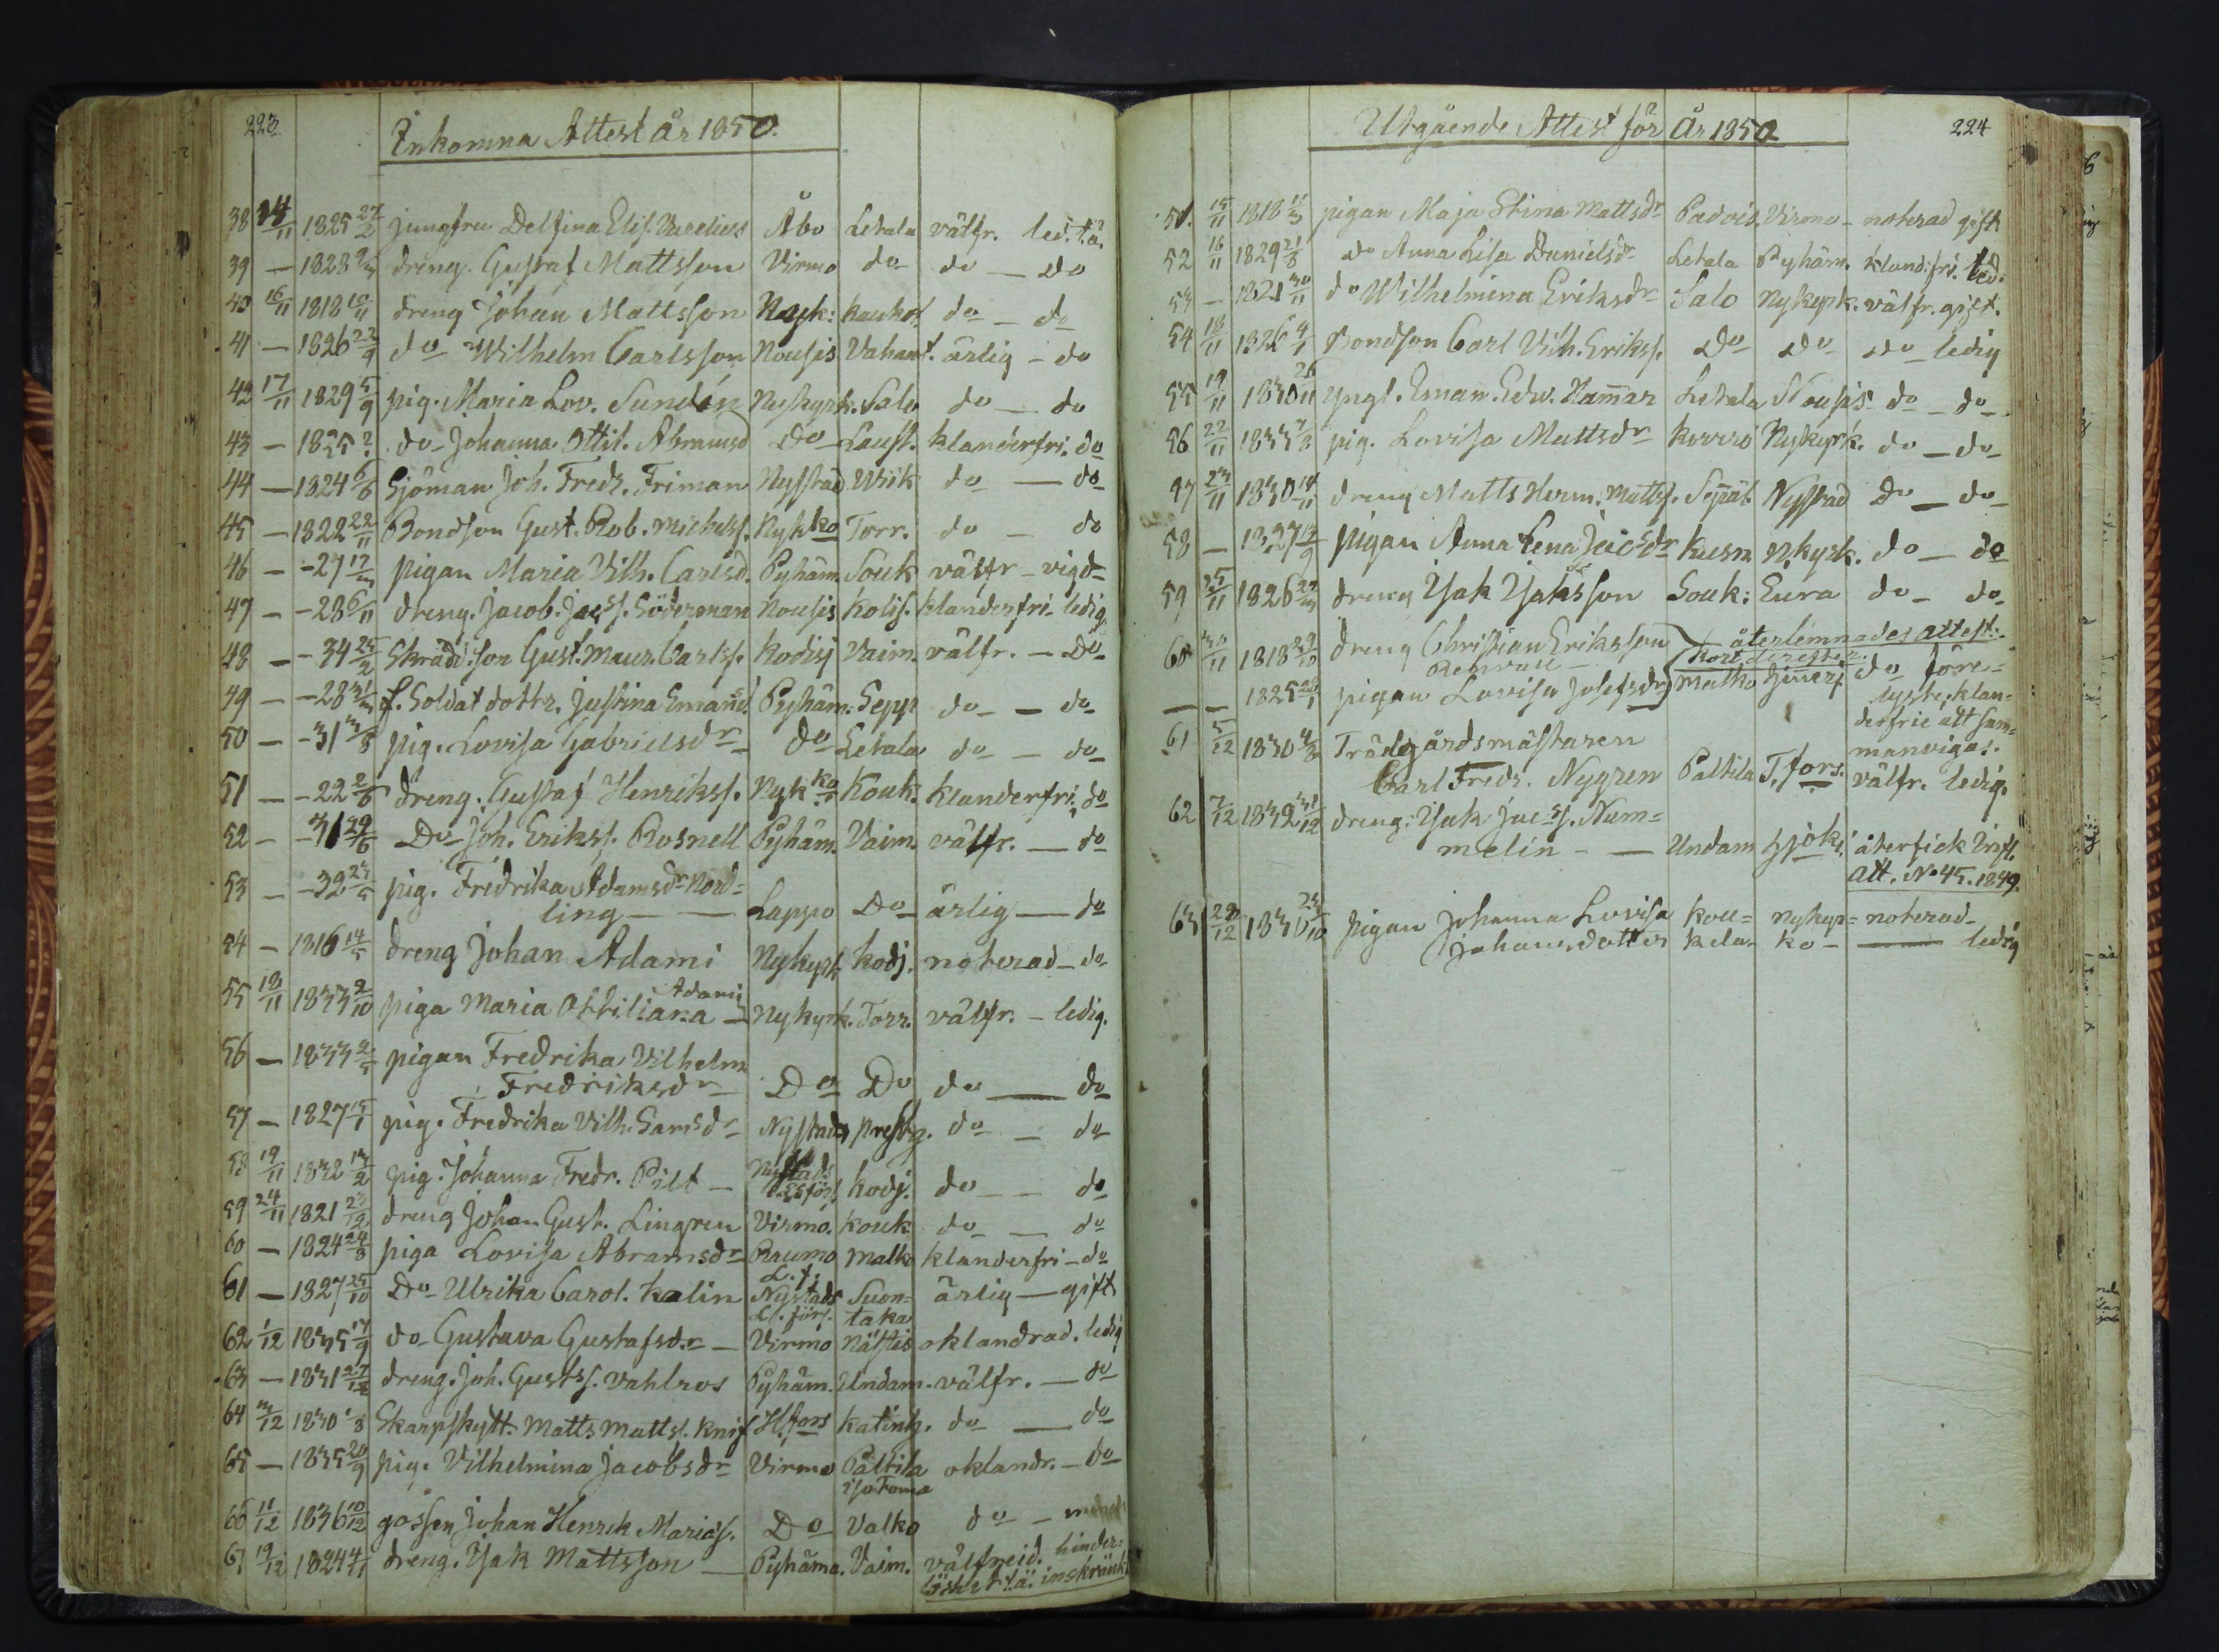 223.
Inkomna Attest år 1850.
38 14/11 1825 27/2 jungfru Delfina Elis. Åbo Letala välfr. led. t.ä.
39 — 1828 dreng. Gustaf Mattsson Virmo do do — do
40 16/11 1818 10/11 dreng Johan Mattsson Nyk: Kaukol. do — do
41 — 1826 22/9 do Wilhelm Carlsson Nousis Vahant. ärlig — do
42 17/11 1829 5/9 pig. Maria Lov. Sundén Nykyrk. Salo do — do
43 — 1825 ? do Johanna Ottil. Abramsd do Laust. klanderfri. do
44 — 1824 6/6 Sjöman Joh. Fredr. Friman Nystad Wiik do — do
45 — 1822 22/11 Bondson Gust. Rob. Michelss. Nykko Torr. do — do
46 — -27 17/3 pigan Maria Vilh. Carlsd. Pyhäm. Souk välfr — vigd
47 — -28 6/11 dreng. Jacob Jacss. Söderman Nousis Kolis. klanderfri — ledig
48 — -34 25/2 Skrädd:son Gust. Maur. Carlss. Kodisj Vaim. välfr. — do
49 — -28 31/3 f. Soldat dottr. Justina Emansd. Pyhäm. Sepp do — do
50 — -31 3/8 pig. Lovisa Gabrielsdr do Letala do — do
51 — -22 2/6 dreng. Gustaf Henrikss. Nykko Kouk. klanderfri. do
52 — -31 29/6 Do Joh. Erikss. Rosnell Pyhäm. Vaim. välfr. — do
53 — -32 23/5 pig. Fredrika Adamsdr Nord=
ling — Lappo Do ärlig — do
54 — 1816 14/5 dreng Johan Adami Nykyrk. Kodj. noterad — do
55 18/11 1833 2/10 piga Maria Ottiliana Adami — Nykyrk. Torr. välfr. — ledig.
56 — 1833 2/5 pigan Fredrika Vilhelm
Fredriksdr Do Do do — do
57 — 1827 15/1 pig. Fredrika Vilh. Samsdr Nystads prestg. do — do
58 19/11 1832 13/2 pig. Johanna Fredr. Pilt — Nystads Kodj. do — do
59 24/11 1821 23/12 dreng Johan Gust. Lingren Virmo. Kouk do — do
60 — 1824 24/8 piga Lovisa Abramsdr Raumo Malko klanderfri — do
L. f.
61 — 1827 25/10 Do Ulrika Carol. Kalin Nystads Suon= ärlig — gift
Ls. förs. taka
62 1/12 1835 17/9 do Gustava Gustafsdr — Virmo Nättis oklandrad. ledig
63 — 1831 27/12 dreng. Joh. Gustss. Vahlros Pyhäm. Undam. välfr. — do
64 3/12 1830 1/8 Skarpskytt. Matts Mattss. Knif H.fors Katinh. do — do
65 — 1835 20/9 pig. Vilhelmina Jacobsdr Virmo Paltila oklandr. — do
iso Toma
66 11/12 1836 10/12 gossen Johan Henrik Mariäs. Do Valko do —
67 19/12 1824 4/1 dreng. Isak Mattsson — Pyhäma. Vaim. välfreid. hinder=
löshet t.ä. inskränk
Utgående Attest för År 1850
224
51. 15/11 1818 11/3 pigan Maja Stina Mattsdr Padois. Virmo — noterad gift
52 16/11 1829 21/8 do Anna Lisa Danielsdr Letala Pyhäm. kland:fri. led.
53 — 1821 30/11 do Wilhelmina Eriksdr Salo Nykyrk. välfr. gift.
54 18/11 1826 4/1 Bondson Carl Vilh. Erikss. Do Do do ledig
55 19/11 1830 26/11 yngl. Eman. Edv. Hammar Letala Nousis do — do
56 22/11 1833 7/3 pig. Lovisa Mattsdr Korvo Nykyrk. do — do
57 23/11 1830 14/11 dreng Matts Herm. Mattss. Seppät. Nystad Do — do
58 — 1827 13/9 pigan Anna Lena Jacsdr Kusn N.kyrk. do — do
59 25/11 1826 22/3 dreng Isak Isaksson Souk: Eura do — do
60 30/11 1818 29/10 dreng Christian Eriksson återlemnades attest.
kort derefter.
— — 1825 28/1 pigan Lovisa Josefsdr Malko do före=
lyste, klan=
derfrie att sam=
61 5/12 1830 4/8 Trädgårdsmästaren manvigas.
Carl Fredr. Nygren Paltila T.fors. välfr. ledig.
62 7/12 1832 31/12 dreng: Isak Jacss. Num=
melin — Undam Hjoki. återfick
Att. No 45. 1849.
63 22/12 1830 23/10 pigan Johanna Lovisa Kou= Nykyr= noterad
Johansdotter kela ko — ledig